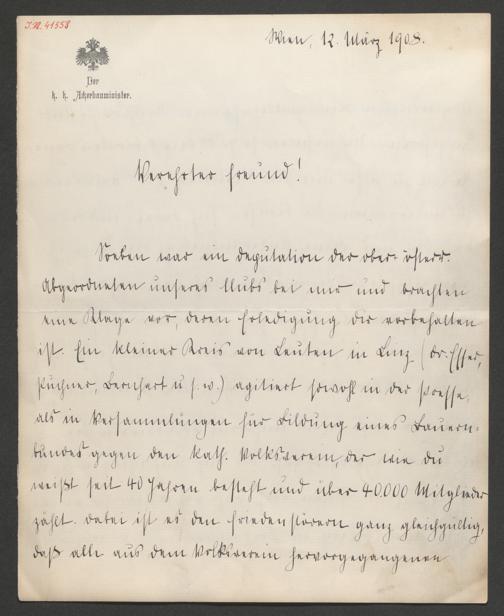 J.N. 41558
Wien, 12. März 1908.
Der
k. k. Ackerbauminister.
Verehrter Freund!
Soeben war ein Deputation der ober-österr.
Abgeordneten unseres Klubs bei mir und brachten
eine Klage vor, deren Erledigung dir vorbehalten
ist. Ein kleiner Kreis von Leuten in Linz (Dr. Esser,
Puchner, Bernhart u. s. w.) agitiert sowohl in der Presse,
als in Versammlungen für Bildung eines Bauern-
bundes gegen den kath. Volksverein, der wie du
weißt seit 40 Jahren besteht und über 40.000 Mitglieder
zählt. Dabei ist es den Friedensstörern ganz gleichgültig,
daß alle aus dem Volksverein hervorgegangenen